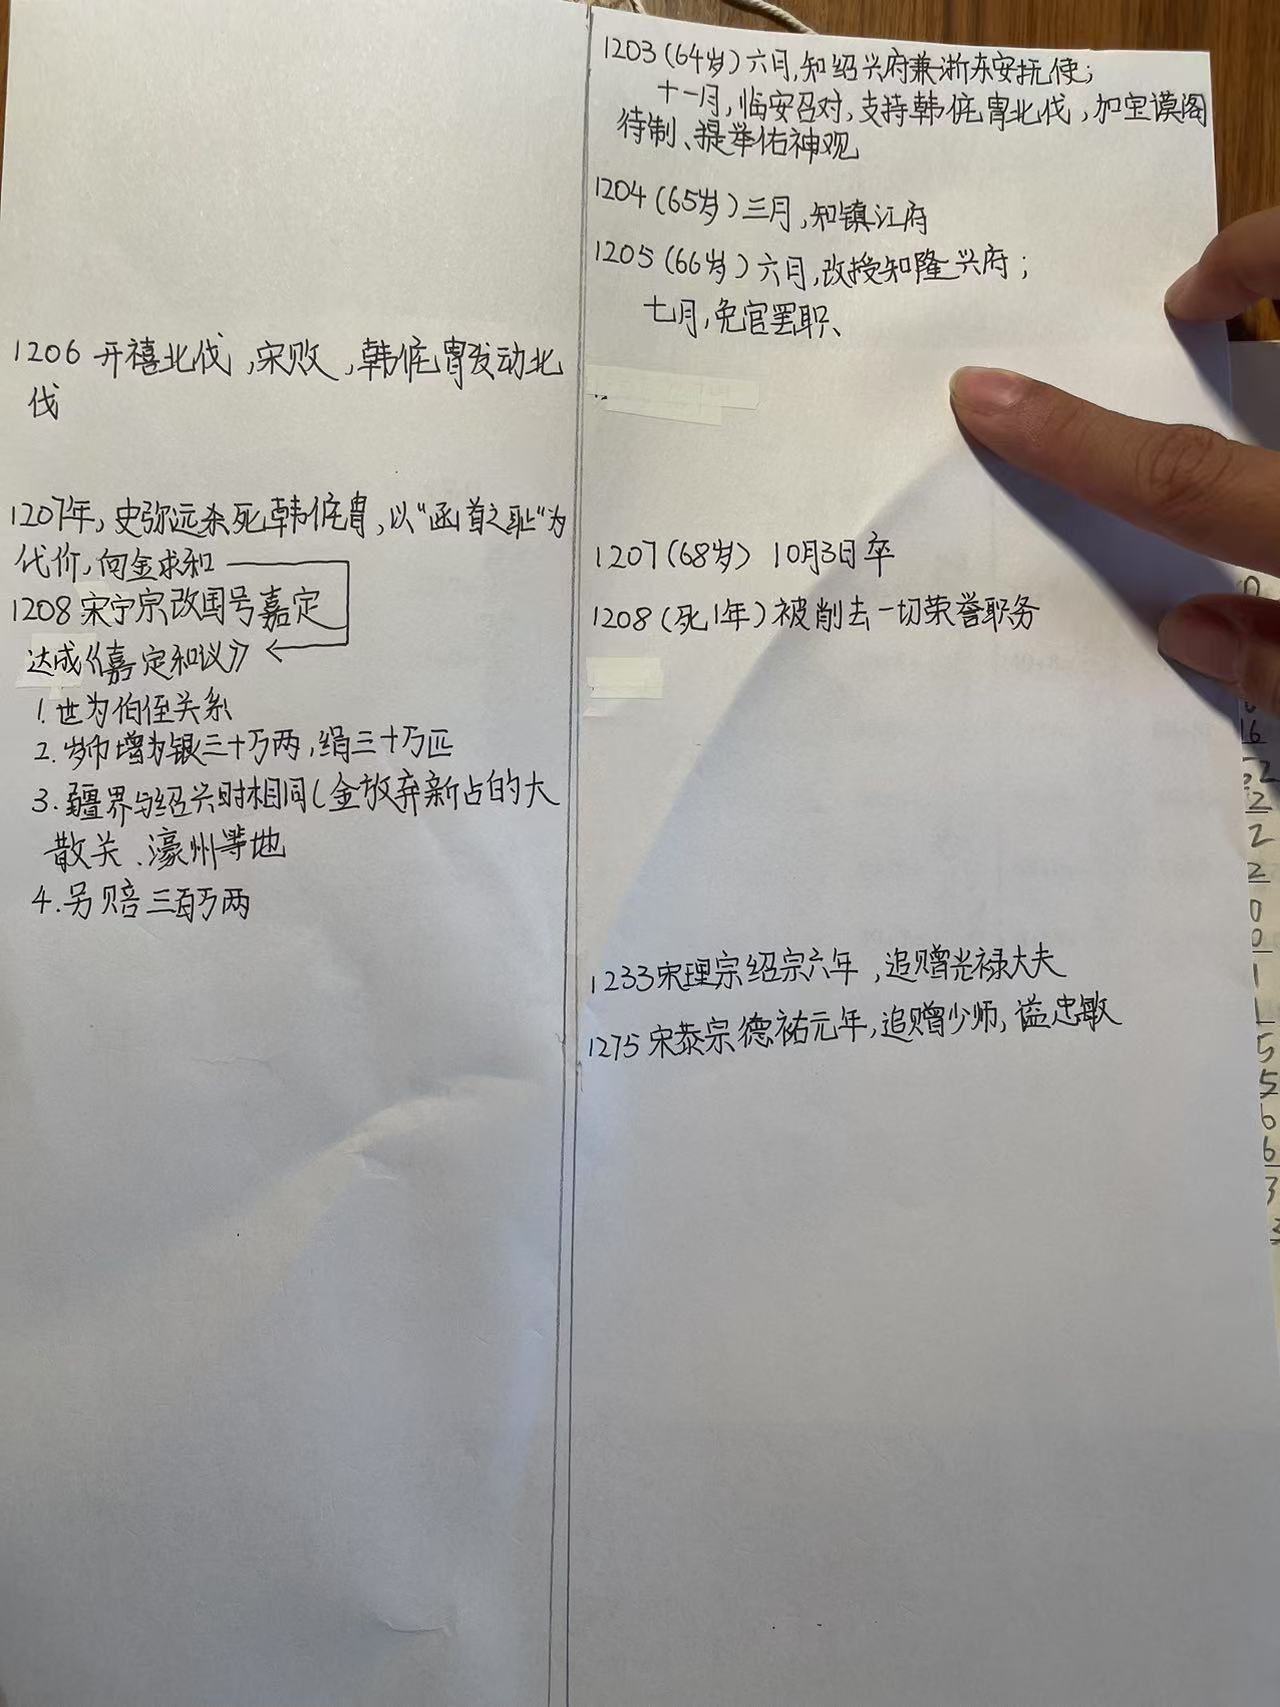 1206 开禧北伐,宋败,韩侂胄发动北
伐
1207年,史弥远杀死韩侂胄,以“函首之耻”为
代价,向金求和
1208 宋宁宗改国号嘉定
达成《嘉定和议》
1.世为伯侄关系
2.岁币增为银三十万两,绢三十万匹
3.疆界与绍兴时相同(金放弃新占的大
散关、濠州等地
4.另赔三百万两
1203(64岁)六月,知绍兴府兼浙东安抚使;
十一月,临安召对,支持韩侂胄北伐,加宝谟阁
待制、提举佑神观
1204(65岁)三月,知镇江府
1205(66岁)六月,改授知隆兴府;
七月,免官罢职、
1207(68岁) 10月3日卒
1208(死1年)被削去一切荣誉职务
1233宋理宗绍宗六年,追赠光禄大夫
1275宋恭宗德祐元年,追赠少师,谥忠敏
16
2
2
2
2
0
0
1
1
5
5
6
6
3